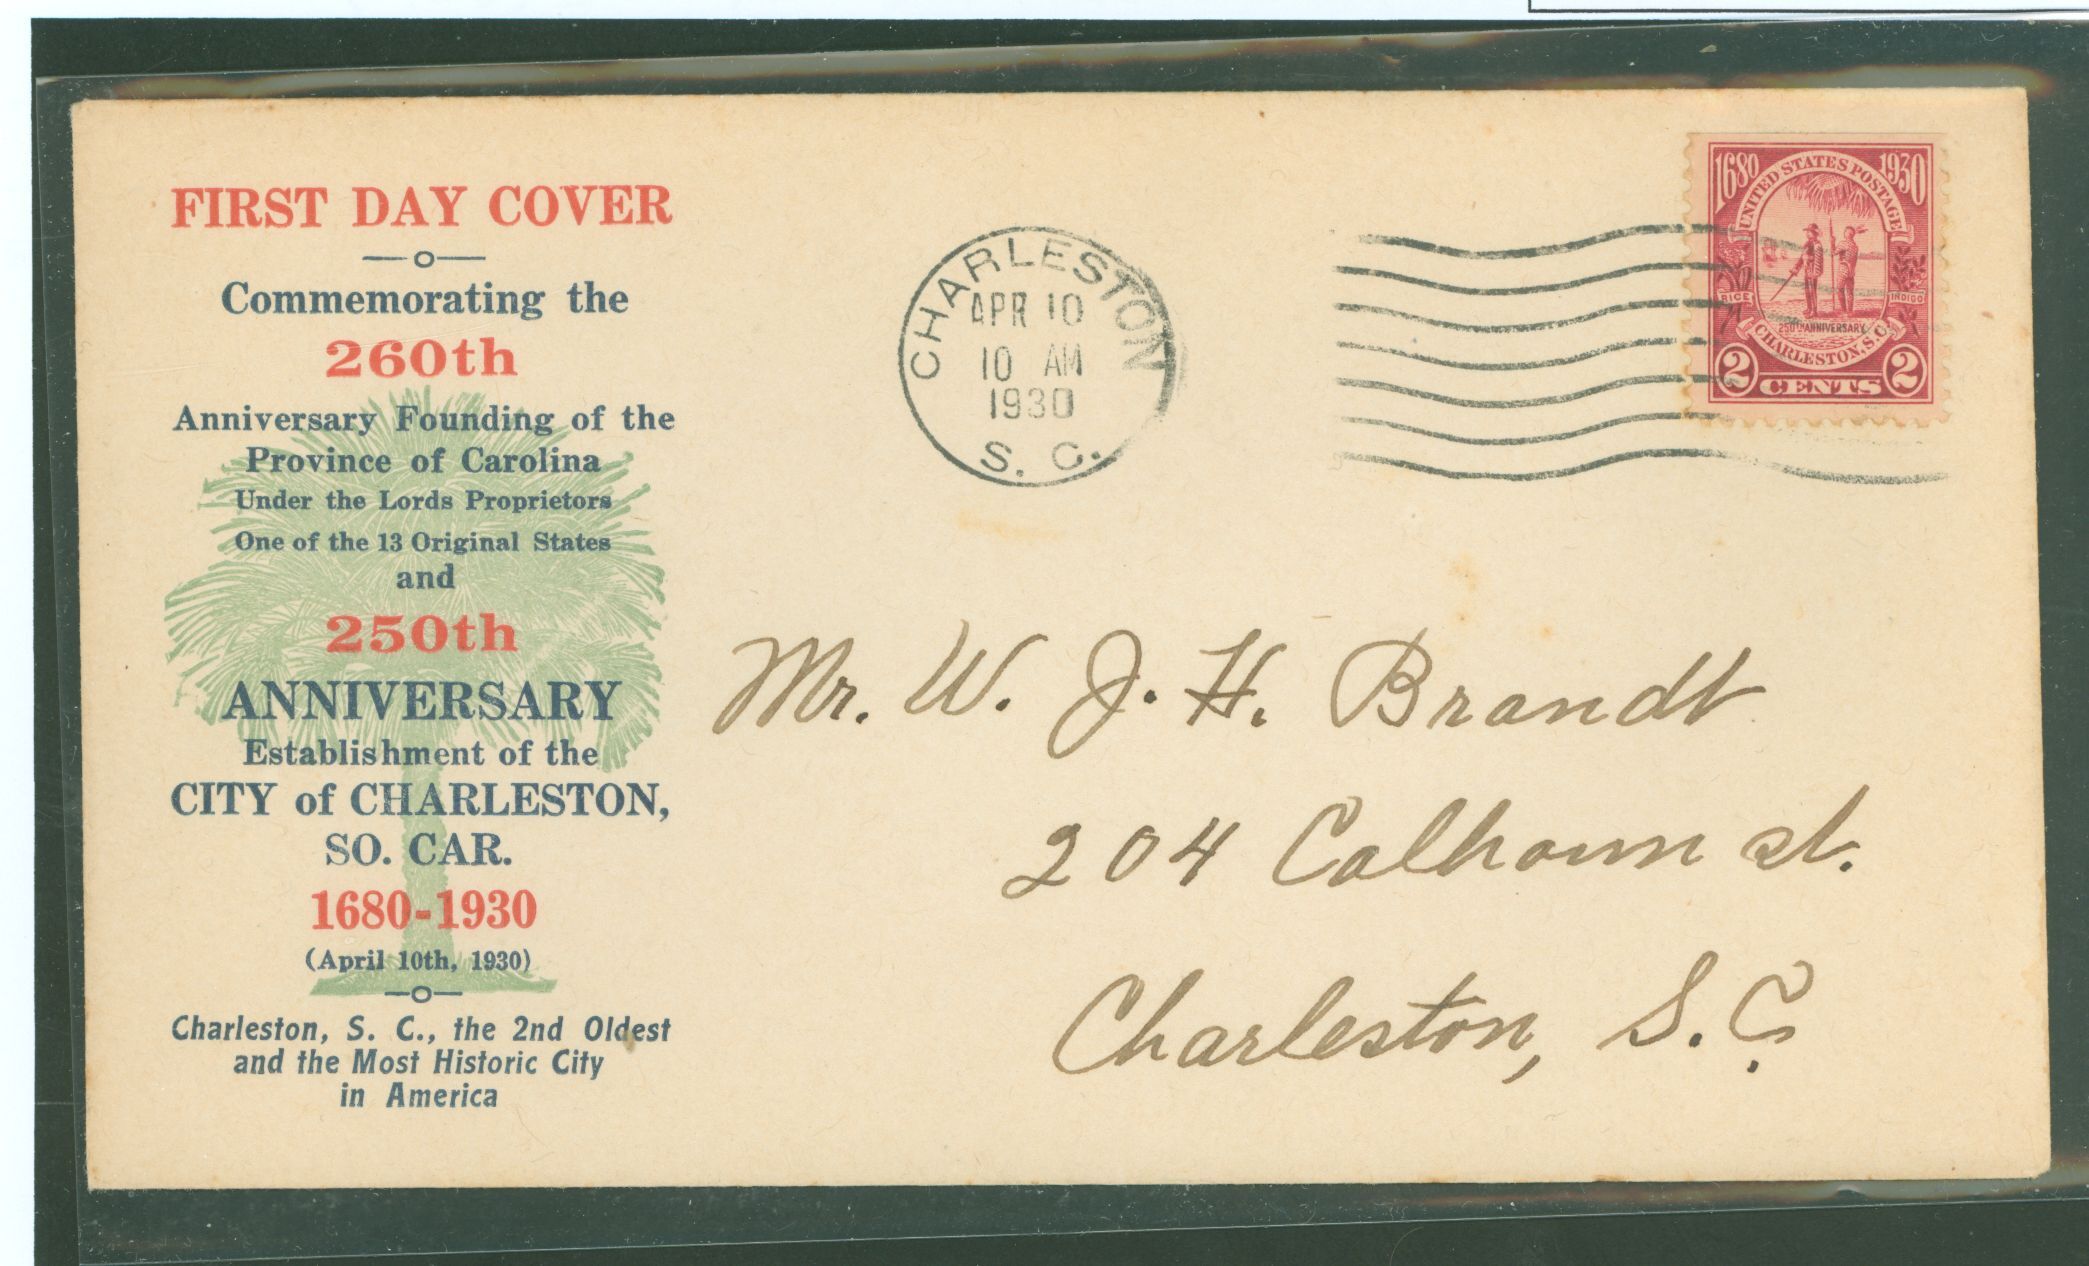 FIRST DAY COVER
Commemorating the
260th
Anniversary Founding of the
Province of Carolina
Under the Lords Proprietors
One of the 13 Original States
and
250th
ANNIVERSARY
Establishment of the
CITY of CHARLESTON,
SO. CAR.
1680-1930
(April 10th, 1930)
Charleston, S. C., the 2nd Oldest
and the Most Historic City
in America
CHARLESTON
APR 10
10 AM
1930
S. C.
1680 1930
UNITED STATES POSTAGE
RICE INDIGO
250TH ANNIVERSARY
CHARLESTON, S.C.
2 CENTS 2
Mr. W. J. H. Brandt
204 Calhoun st.
Charleston, S. C.